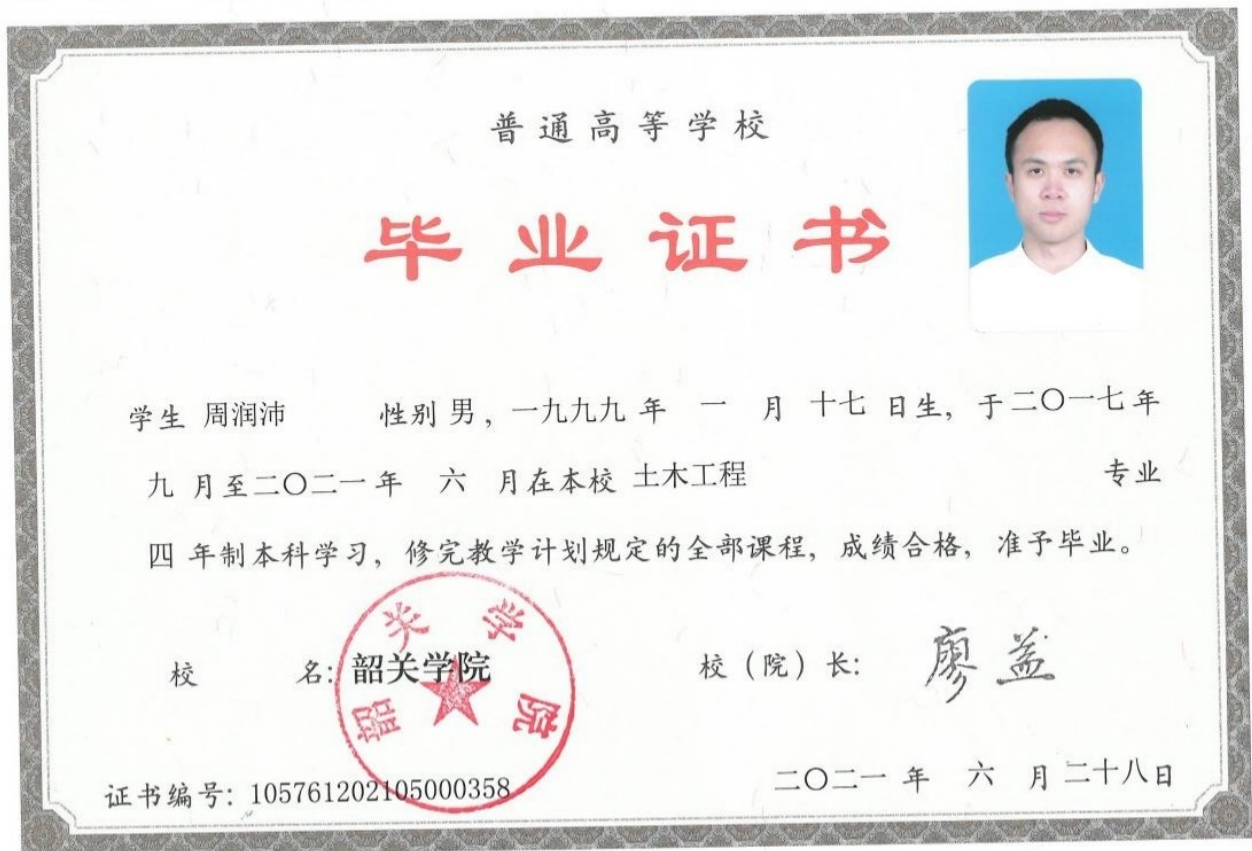 普通高等学校
毕业证书
学生 周润沛 性别 男，一九九九 年 一 月 十七 日生，于二〇一七年
九 月至二〇二一年 六 月在本校 土木工程 专业
四 年制本科学习，修完教学计划规定的全部课程，成绩合格，准予毕业。
校 名：韶关学院
韶关学院
校（院）长： 廖益
证书编号：105761202105000358
二〇二一 年 六 月 二十八日